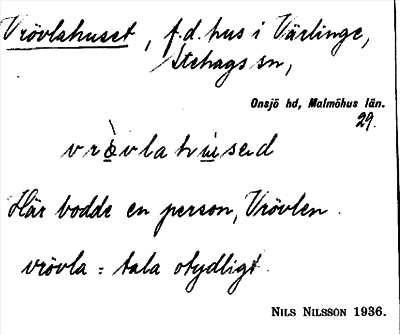 Vrövlahuset, f.d. hus i Värlinge,
Stehags sn,
Onsjö hd, Malmöhus län.
29.
Här bodde en person, Vrövlen.
vrövla = tala otydligt.
NILS NILSSON 1936.